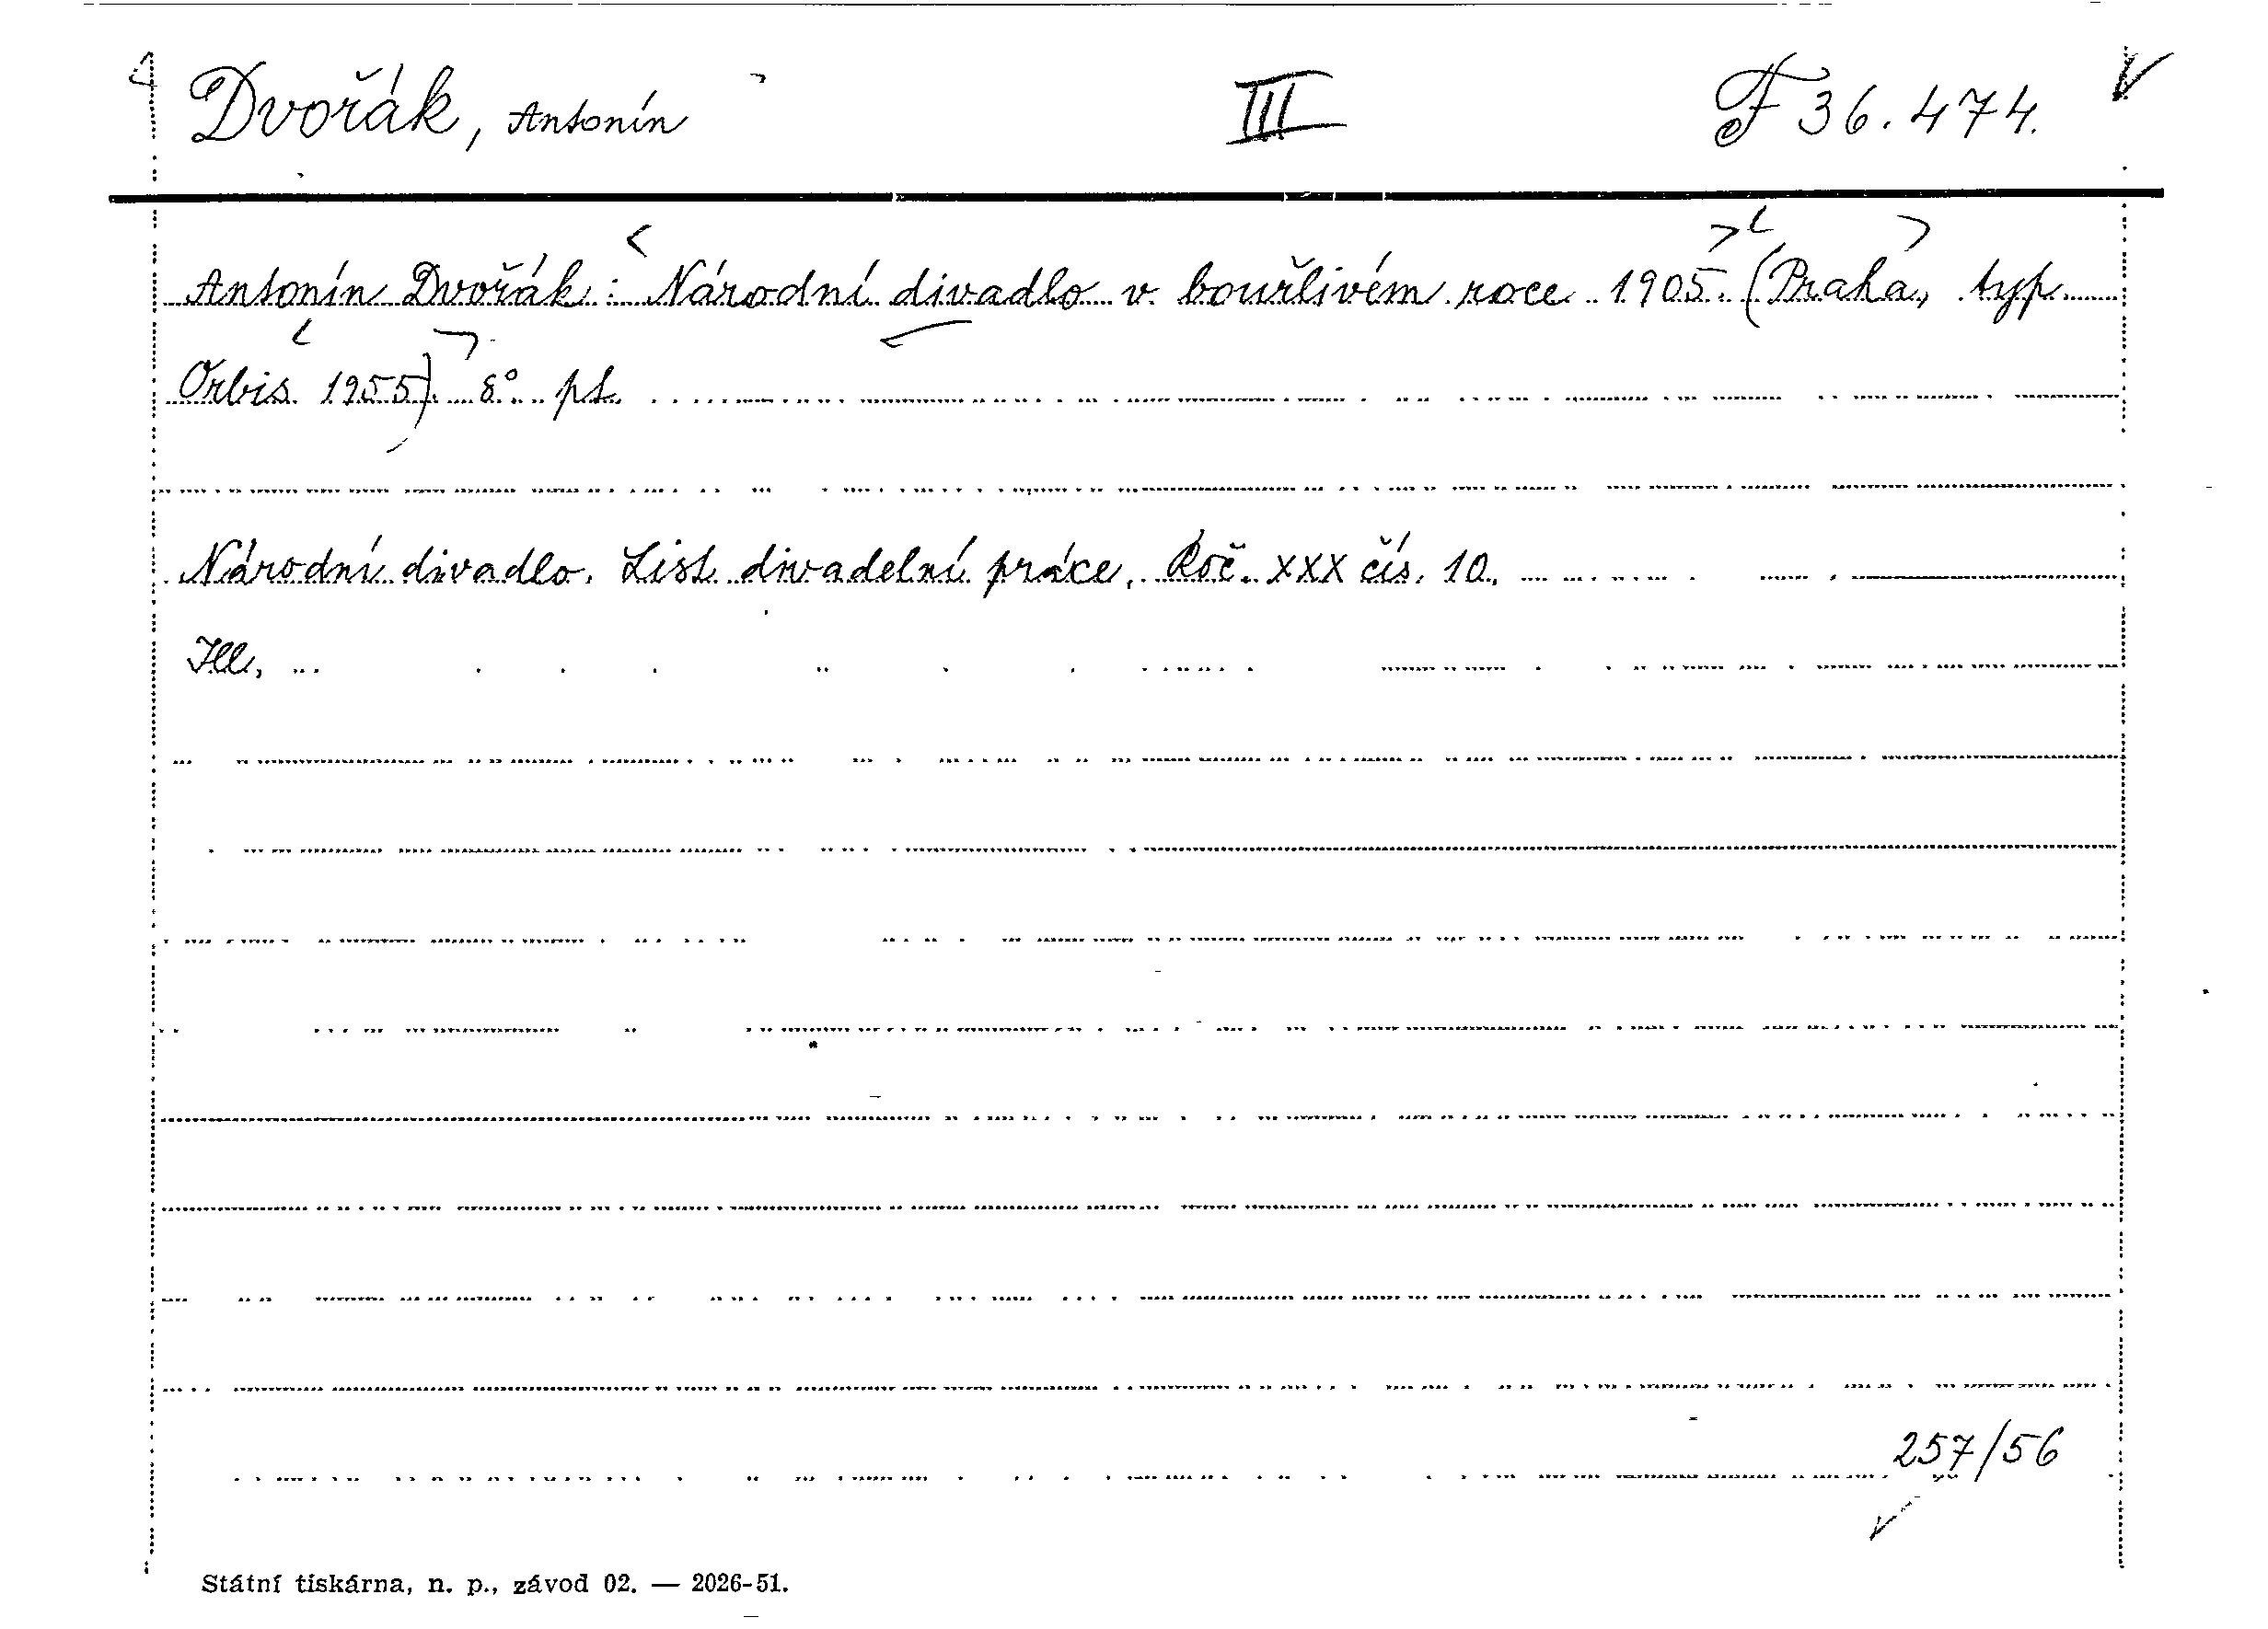 Dvořák, Antonín III F 36.474.
Antonín Dvořák: Národní divadlo v bouřlivém roce 1905. (Praha, typ.
Orbis 1955). 8° pt.
Národní divadlo. List divadelní práce. Roč. XXX čís. 10.
Ill,
257/56
Státní tiskárna, n. p., závod 02. — 2026-51.